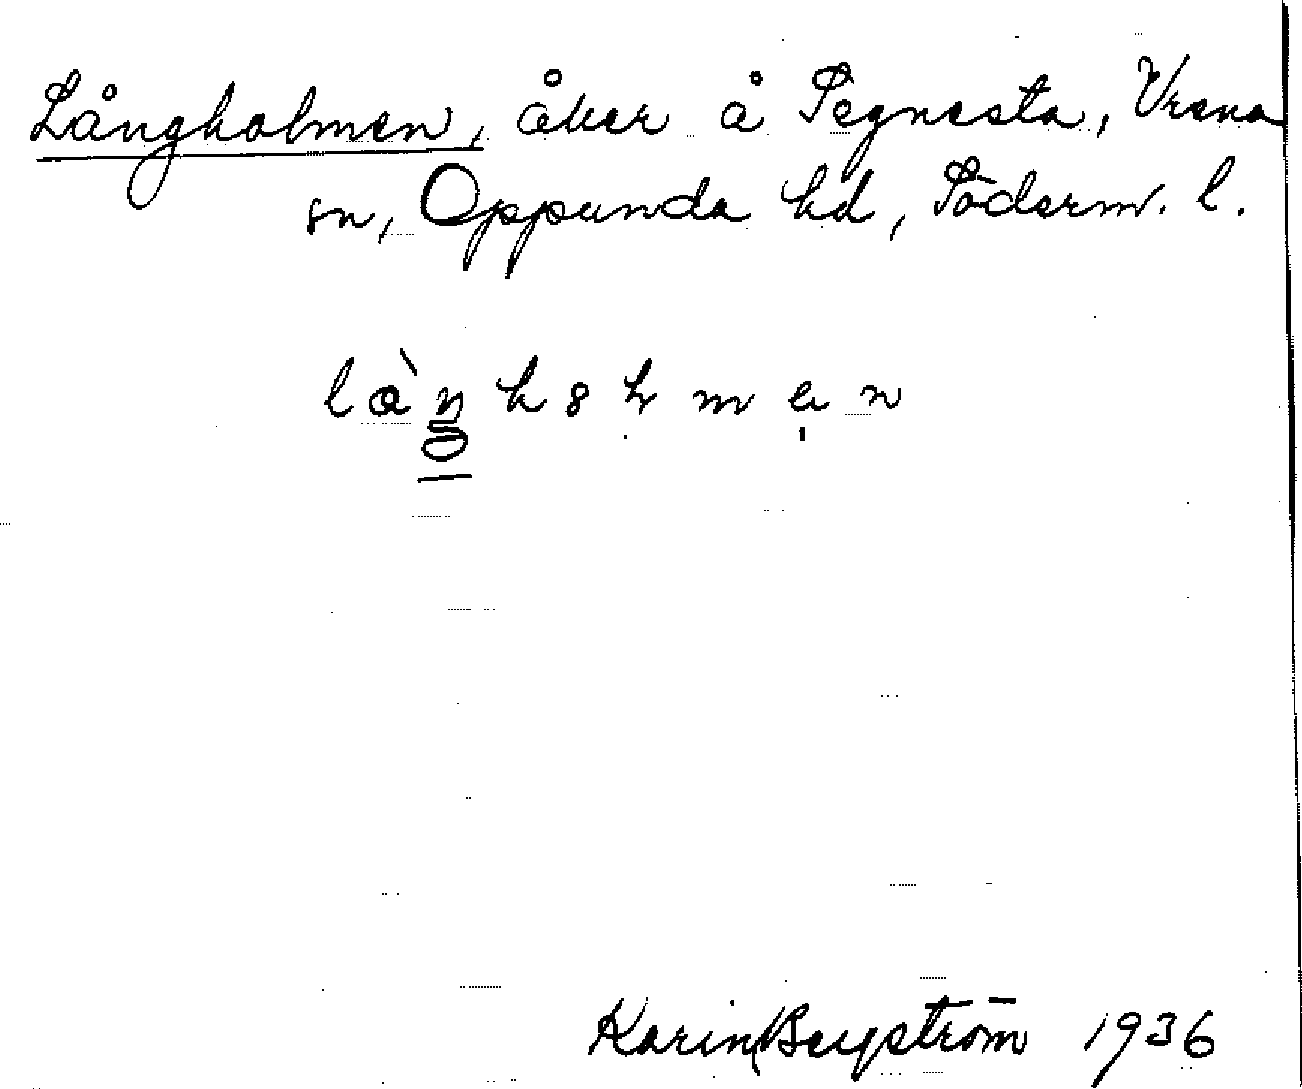 Långholmen, åker å Segnesta, Vrena
sn, Oppunda hd, Söderm. l.
Karin Bergström 1936